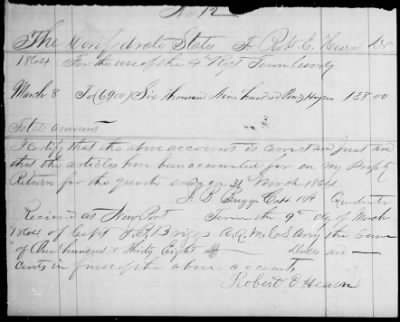 No 12
The Confederate States To Robt. E. Hearn Dr
1864 For the use of the 4th Regt Tenn Cavalry
March 8 To (6900) Six thousand Nine hundred Pounds Hay 138.00
Total amount
I certify that the above account is correct and just and
that the articles have been accounted for on my Property
Return for the quarter ending on 31st March 1864
J. B. Briggs Capt &
Received at New Port Tenn the 9th day of March
1864 of Capt J. B. Briggs A.Q.M. C.S. Army the sum
of One hundred & Thirty Eight Dollars and —
cents in full of the above account
Robert E Hearn